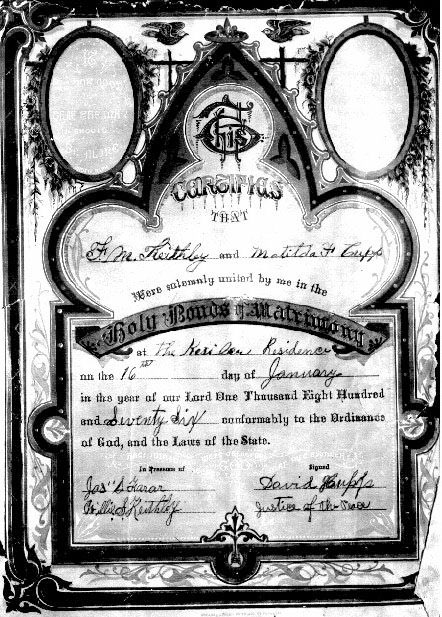 This
CERTIFIES
THAT
F. M. Keithley and Matilda F Cupps
Were solemnly united by me in the
Holy Bonds of Matrimony
at The Residence
on the 16th day of January
in the year of our Lord One Thousand Eight Hundred
and Seventy Six conformably to the Ordinance
of God, and the Laws of the State.
In Presence of Signed
Jas. David Cupps
Willie Keithley Justice of the Peace